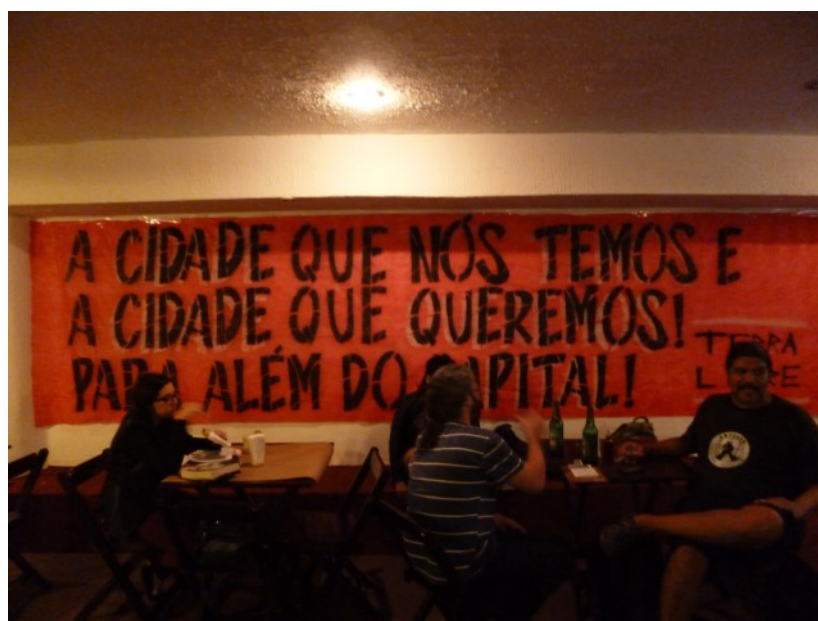 A CIDADE QUE NÓS TEMOS E
A CIDADE QUE QUEREMOS!
PARA ALÉM DO CAPITAL!
TERRA